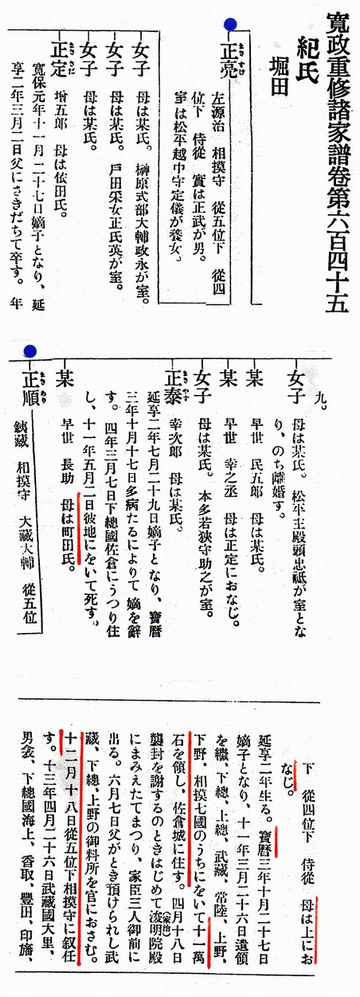 寛政重修諸家譜卷第六百四十五
紀氏
堀田
正亮
まさすけ
左源治　相摸守　從五位下　從四
位下　侍從　實は正武が男。
室は松平越中守定儀が養女。
女子
母は某氏。榊原式部大輔政永が室。
女子
母は某氏。戸田采女正氏英が室。
女子
母は某氏。
正定
まささだ
増五郎　母は依田氏。
寛保元年十一月二十七日嫡子となり、延
享二年三月二日父にさきだちて卒す。年
九。
女子
母は某氏。松平主殿頭忠祗が室とな
り、のち離婚す。
某
早世　民五郎　母は某氏。
某
早世　幸之丞　母は正定におなじ。
女子
母は某氏。本多若狹守助之が室。
正泰
まさやす
幸次郎　母は某氏。
延享二年七月二十九日嫡子となり、寶曆
三年十月十七日多病たるによりて嫡を辭
す。四年三月七日下總國佐倉にうつり住
し、十一年五月二日彼地にをいて死す。
某
早世　長助　母は町田氏。
正順
まさあり
銕藏　相摸守　大藏大輔　從五位
下　從四位下　侍從　母は上にお
なじ。
延享二年生る。寶曆三年十月二十七日
嫡子となり、十一年三月二十六日遺領
を繼、下總、上總、武藏、常陸、上野、
下野、相摸七國のうちにをいて十一萬
石を領し、佐倉城に住す。四月十八日
襲封を謝するのときはじめて浚明院殿
(家治)
にまみえたてまつり、家臣三人御前に
出る。六月七日父がとき預けられし武
藏、下總、上野の御料所を官におさむ。
十二月十八日從五位下相摸守に叙任
す。十三年四月二十六日武藏國大里、
男衾、下總國海上、香取、豐田、印旛、